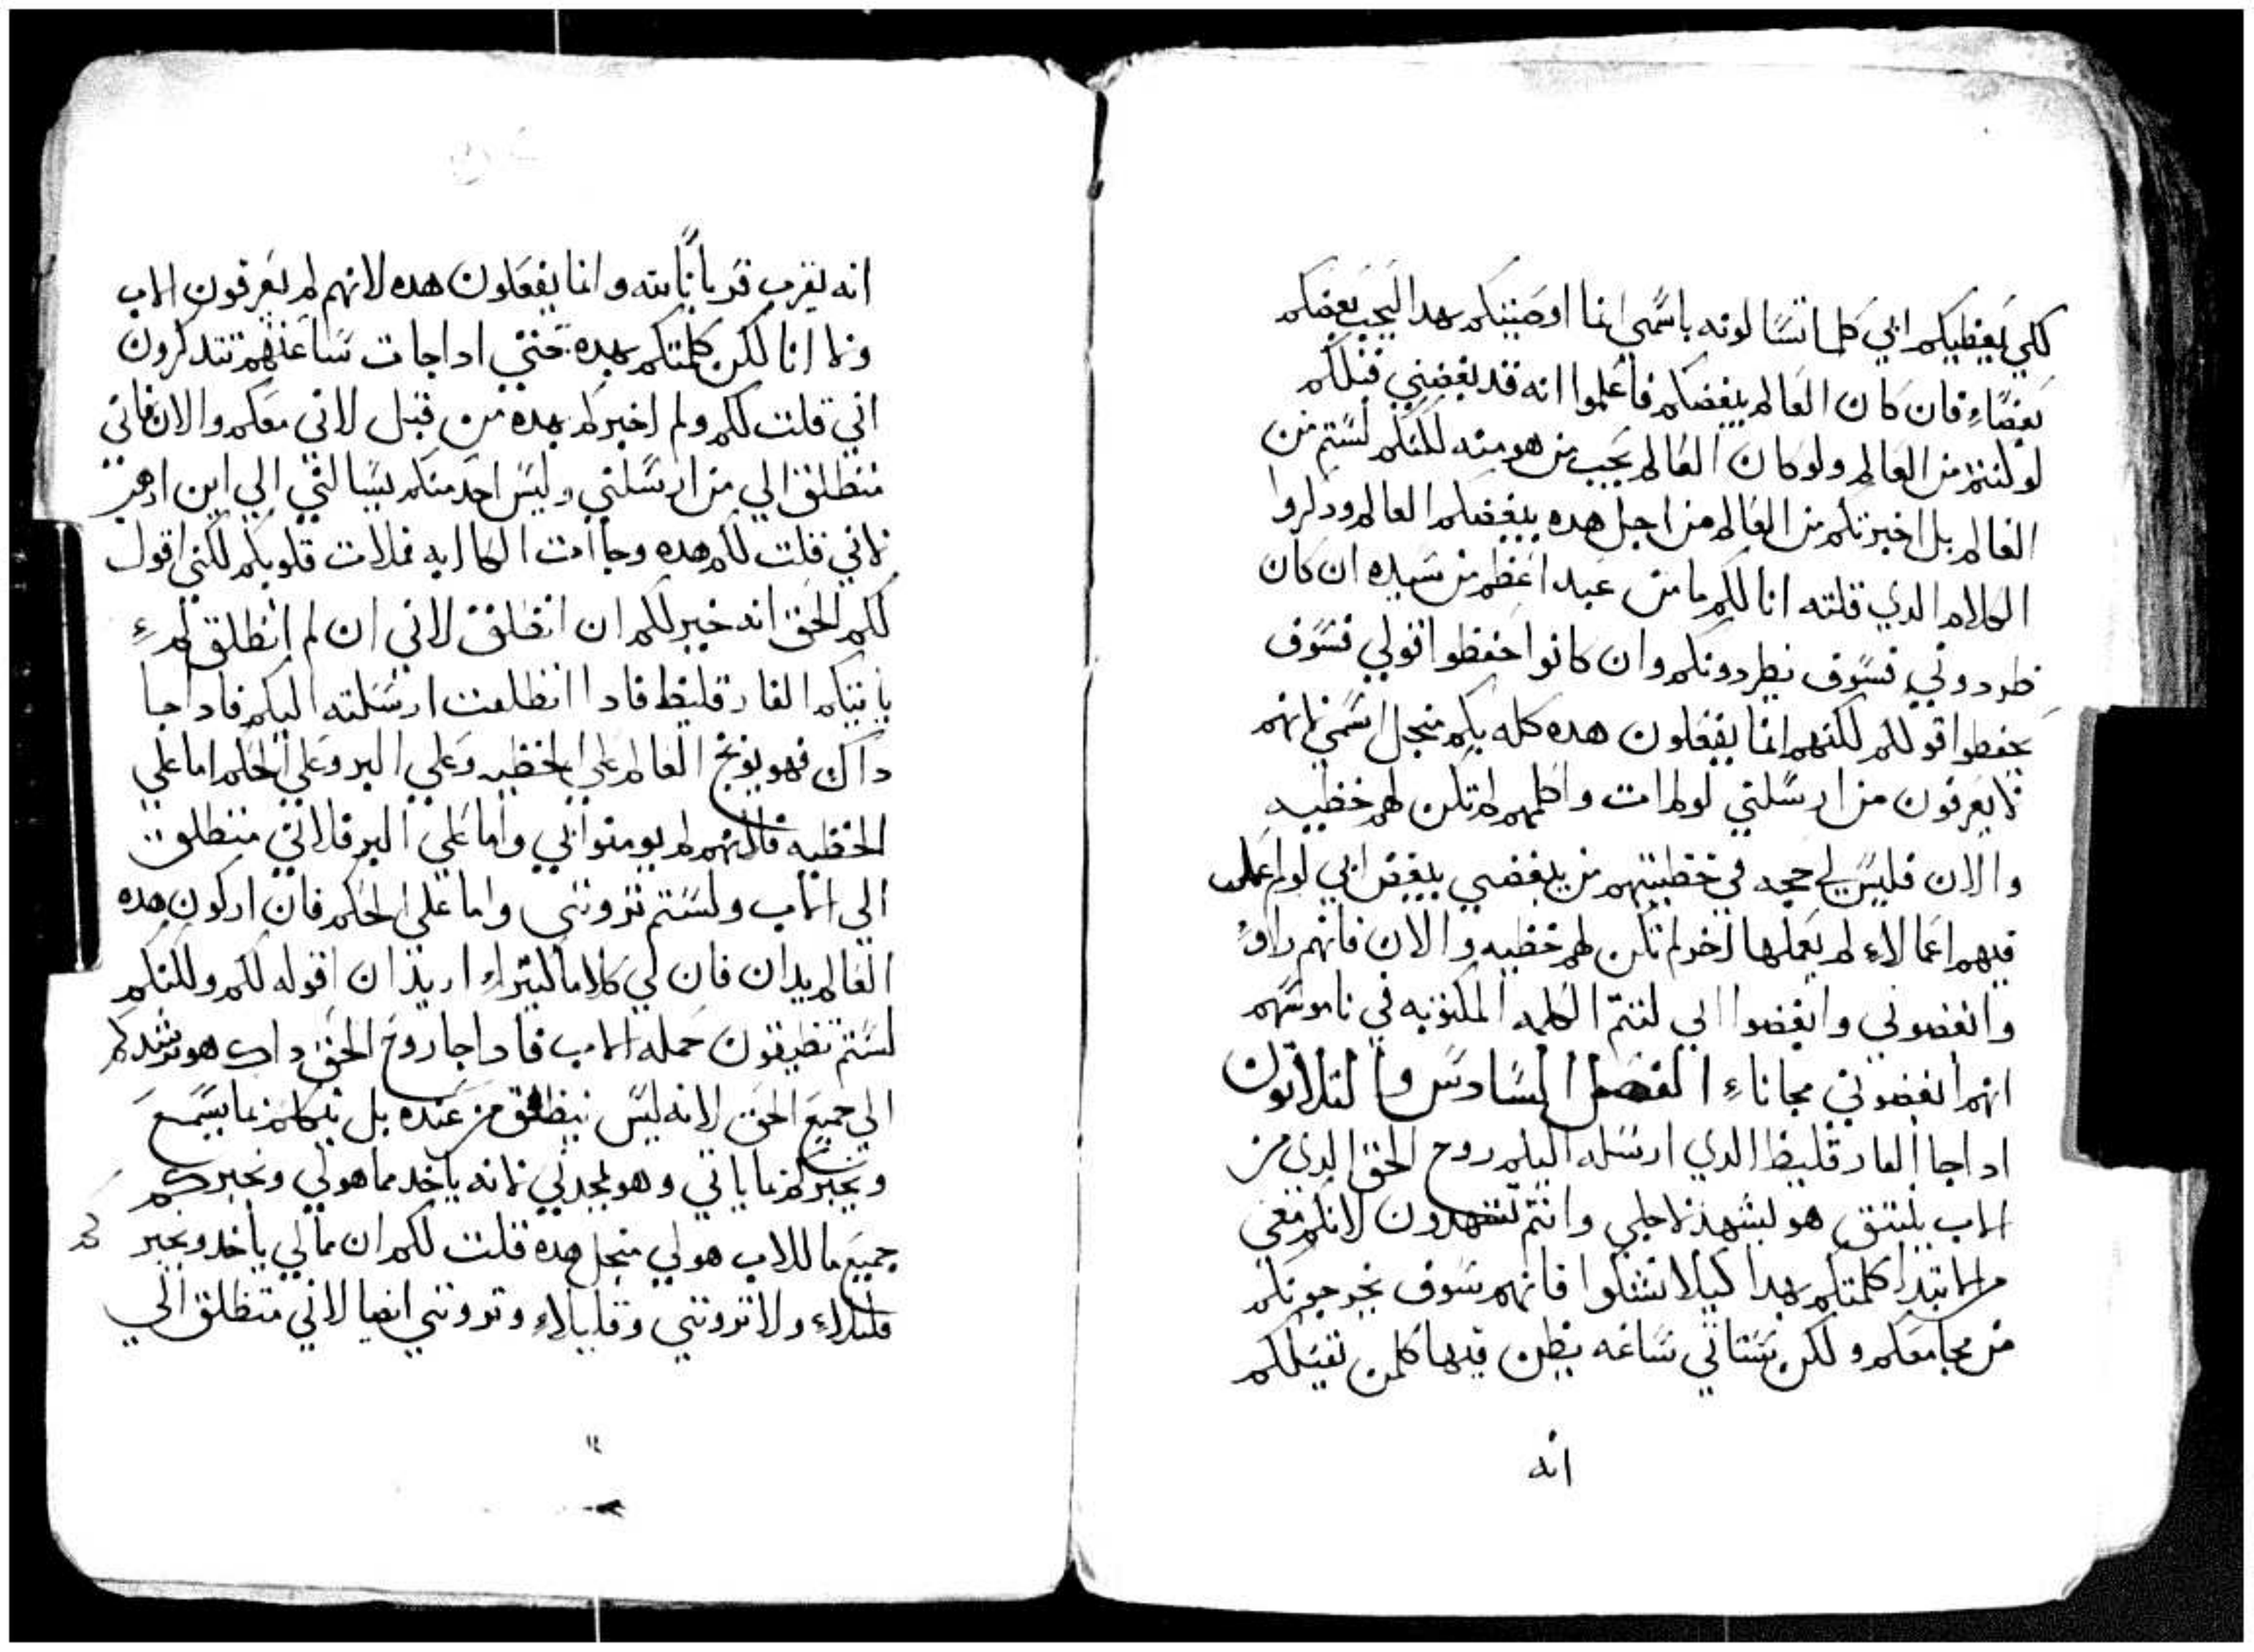 لكي يعطيكم ابي كلما تسالونه باسمي انما اوصيتكم بهدا ليحب بعضكم
بعضاء فان كان العالم يبغضكم فاعلموا انه قد بغضني قبلكم
لو كنتم من العالم ولو كان العالم يحب من هو منه لكنكم لستم من
العالم بل اخبرتكم من العالم من اجل هده يبغضكم العالم ودكروا
الكلام الدي قلته انا لكم ما من عبد اعظم من سيده ان كان
طردوني فسوف يطردونكم وان كانوا حفظوا قولي فسوف
يحفطوا قولكم لكنهم انما يفعلون هده كله بكم منجل اسمي لانهم
لا يعرفون من ارسلني لو لم ات واكلمهم لم تكن لهم خطيه
والان فليس لي حجه في خطيتهم من يبغضني يبغض ابي لو لم اعمل
فيهم اعمالاء لم يعملها اخر لم تكن لهم خطيه والان فانهم راوا
وابغضوني وابغضوا ابي لتتم الكلمه المكتوبه في ناموسهم
انهم ابغضوني مجاناء الفصل السادس والتلاتون
ادا جا الفارقليط الدي ارسله اليكم روح الحق الدي من
الاب ينبتق هو ليشهد لاجلي وانتم تشهدون لانكم معي
من الابتدا كلمتكم بهدا كيلا تشكوا فانهم سوف يخرجونكم
من مجامعكم ولكن ستاتي ساعه يظن فيها كلمن يقتلكم
انه
انه يقرب قرباناً لله وانما يفعلون هده لانهم لم يعرفون الاب
ولا انا لكن كلمتكم بهده حتي ادا جات ساعتهم تتدكرون
اني قلت لكم ولم اخبركم بهده من قبل لاني معكم والان فاني
منطلق الي من ارسلني وليس احد منكم يسالني الي اين ادهب
لاني قلت لكم هده وجاات الكاابه فملات قلوبكم لكني اقول
لكم الحق انه خير لكم ان انطلق لاني ان لم انطلق لم
ياتيكم الفارقليط فادا انطلقت ارسلته اليكم فادا جا
داك فهو يوبخ العالم علي الخطيه وعلي البر وعلي الحكم اما علي
الخطيه فلانهم لم يومنوا بي واما علي البر فلاني منطلق
الي الاب ولستم تروني واما علي الحكم فان اركون هده
العالم يدان فان لي كلاما كتيراء اريد ان اقوله لكم ولكنكم
لستم تطيقون حمله الاب فادا جا روح الحق داك هو يرشدكم
الي جميع الحق لانه ليس ينطق من عنده بل يتكلم بما يسمع
ويخبركم بما ياتي وهو يمجدني لانه ياخد مما هو لي ويخبركم
جميع ما للاب هو لي منجل هده قلت لكم ان مما لي ياخد ويخبر
كم
قليلاء ولا تروني وقليلاء وتروني ايضا لاني منطلق الي